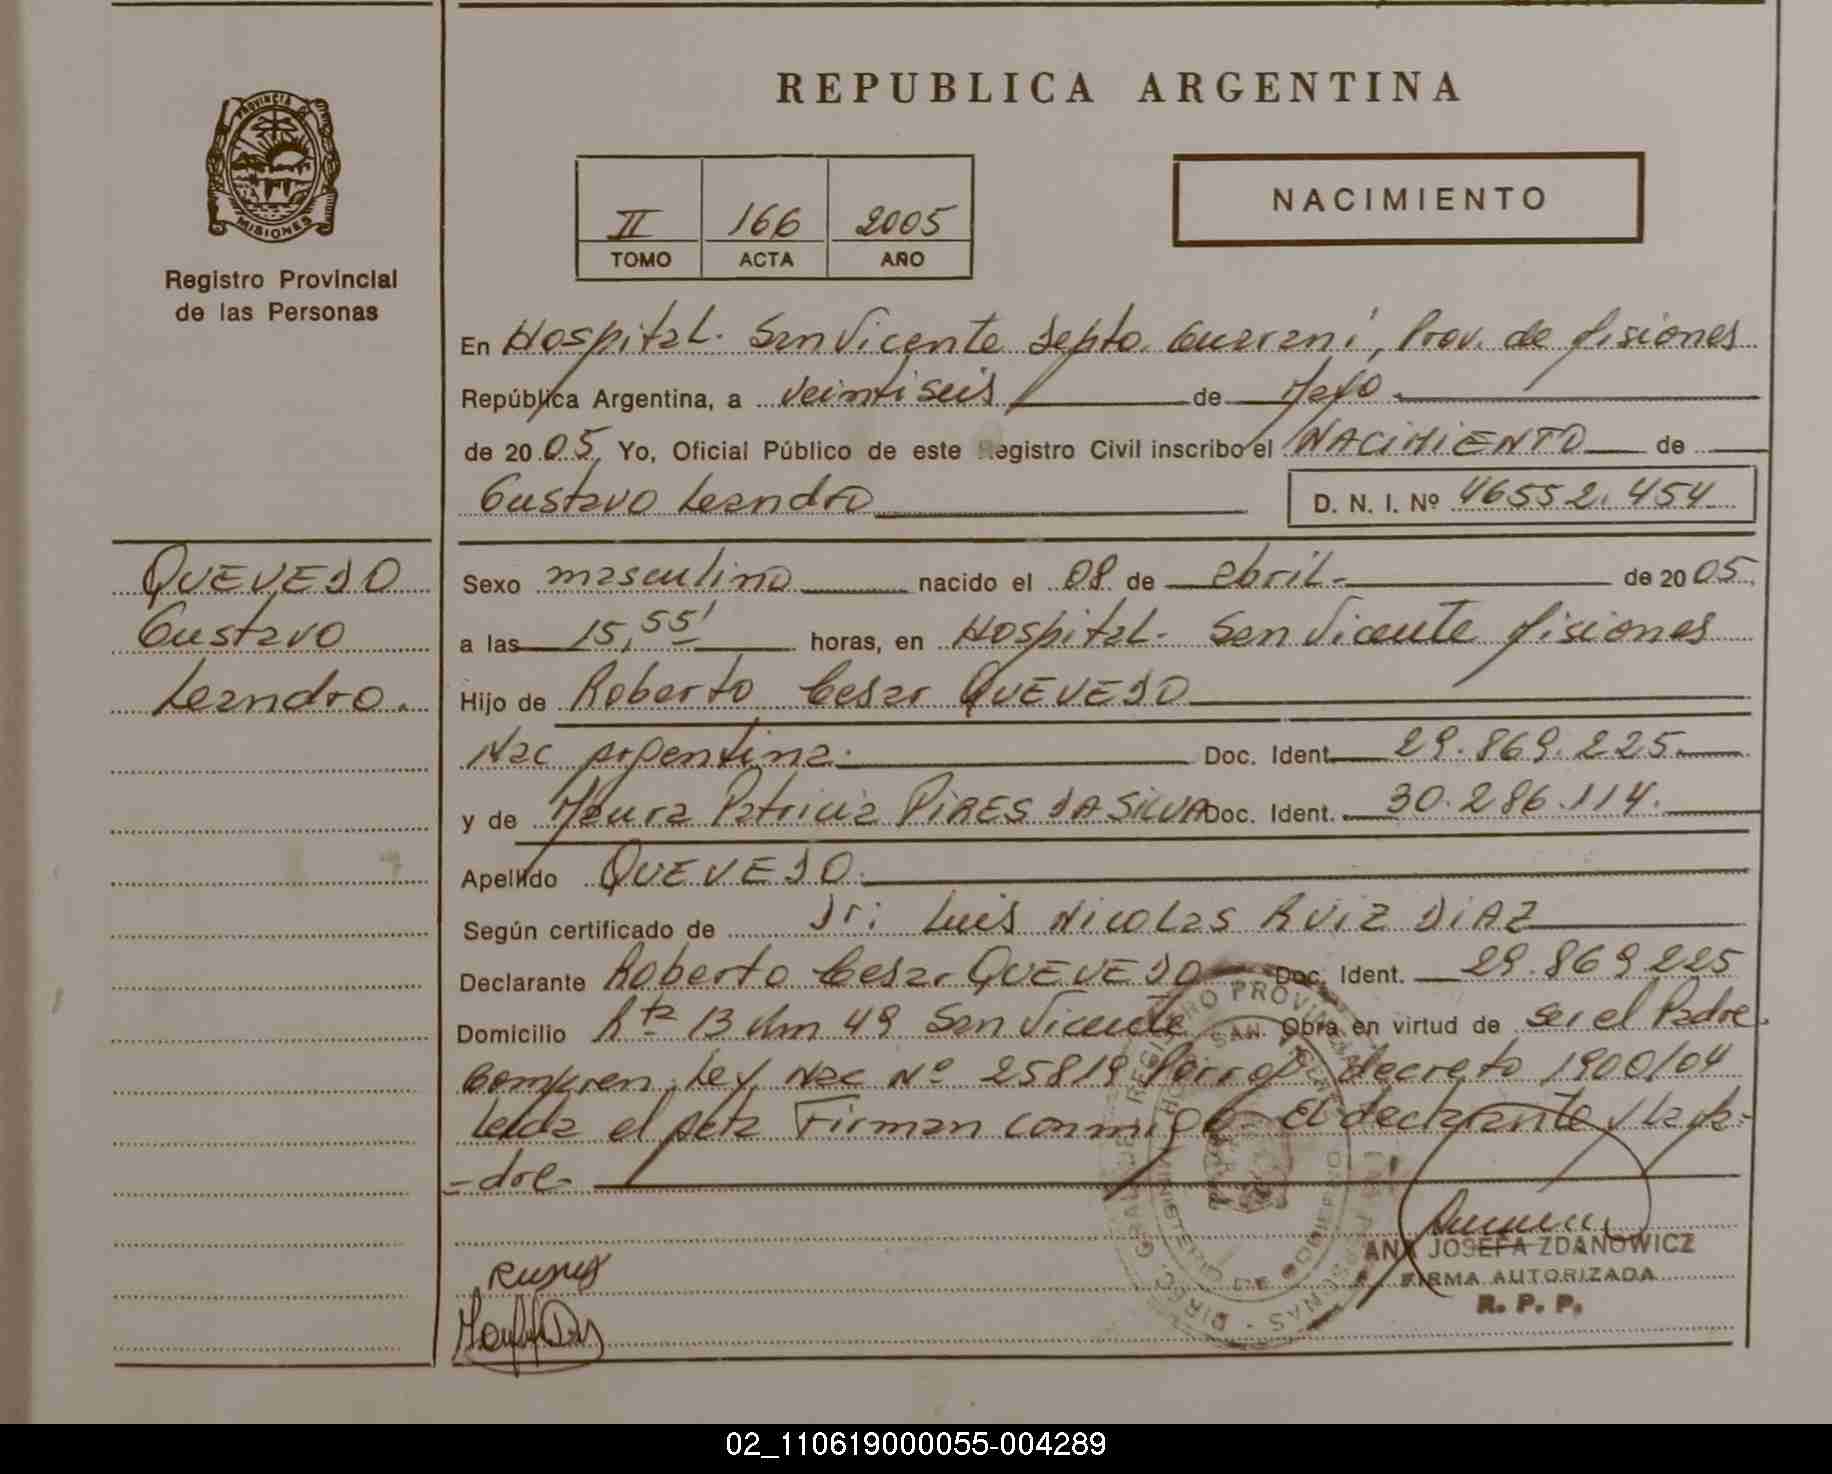 REPUBLICA ARGENTINA
PROVINCIA DE
MISIONES
Registro Provincial
de las Personas
NACIMIENTO
II 166 2005
TOMO ACTA AÑO
En Hospital. San Vicente Depto. Guaraní, Prov. de Misiones
República Argentina, a veintiseis de Mayo
de 2005 Yo, Oficial Público de este Registro Civil inscribo el NACIMIENTO de
Gustavo Leandro D. N. I. Nº 46552.454
QUEVEDO
Gustavo
Leandro.
Sexo masculino nacido el 08 de abril de 2005
a las 15,55' horas, en Hospital. San Vicente Misiones
Hijo de Roberto Cesar QUEVEDO
Nac Argentina. Doc. Ident. 29.869.225
y de Maura Patricia PIRES DA SILVA Doc. Ident. 30.286.114.
Apellido QUEVEDO.
Según certificado de Dr: Luis Nicolas RUIZ DIAZ
Declarante Roberto Cesar QUEVEDO Doc. Ident. 29.869.225
Domicilio Rta 13 Km 49 San Vicente Obra en virtud de ser el Padre
Ley Nac Nº 25819 decreto 1900/04
Leida el Acta Firman conmigo El declarante y la Ma=
=dre-
ANA JOSEFA ZDANOWICZ
FIRMA AUTORIZADA
R. P. P.
02_110619000055-004289